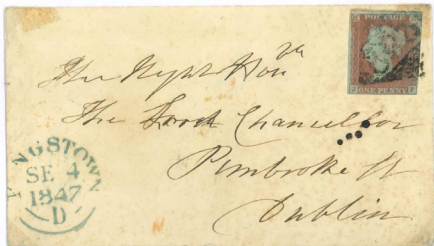 POSTAGE
ONE PENNY
The Right Hon
The Lord Chancellor
Pembroke St
Dublin
KINGSTOWN
SE 4
1847
D